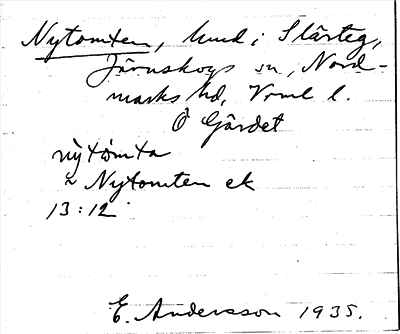 Nytomten, hmd i Slärteg,
Järnskogs sn, Nord-
marks hd, Vrml l.
Ö Gärdet
nỳtòmta
2 Nytomten ek
13:12
E. Andersson 1935.